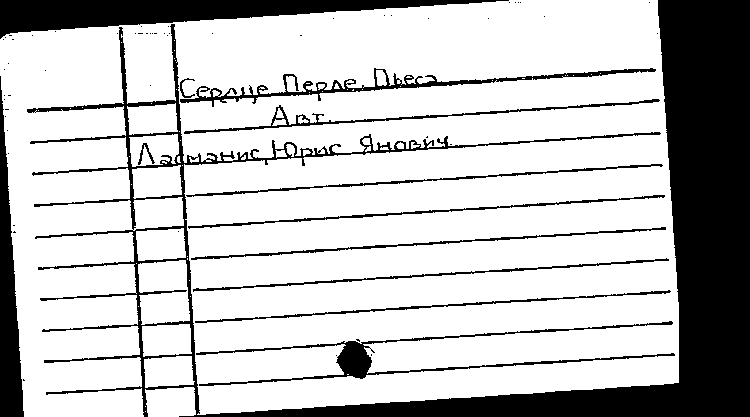 Сердце Перле. Пьеса
Авт.
Ласманис, Юрис Янович